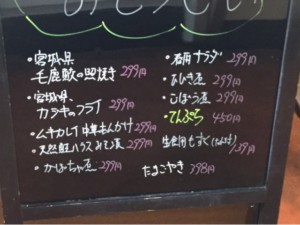 ・宮城県
毛鹿鮫の照焼き 299円
・宮城県
カジキのフライ 299円
・ムキカレイ 中華あんかけ 299円
・天然鮭ハラス みそ漬 299円
・かぼちゃ煮 299円
サラダ 299円
・あじき煮 299円
・ごぼう煮 299円
・てんぷら 450円
生食用もずく
139円
たまごやき 398円